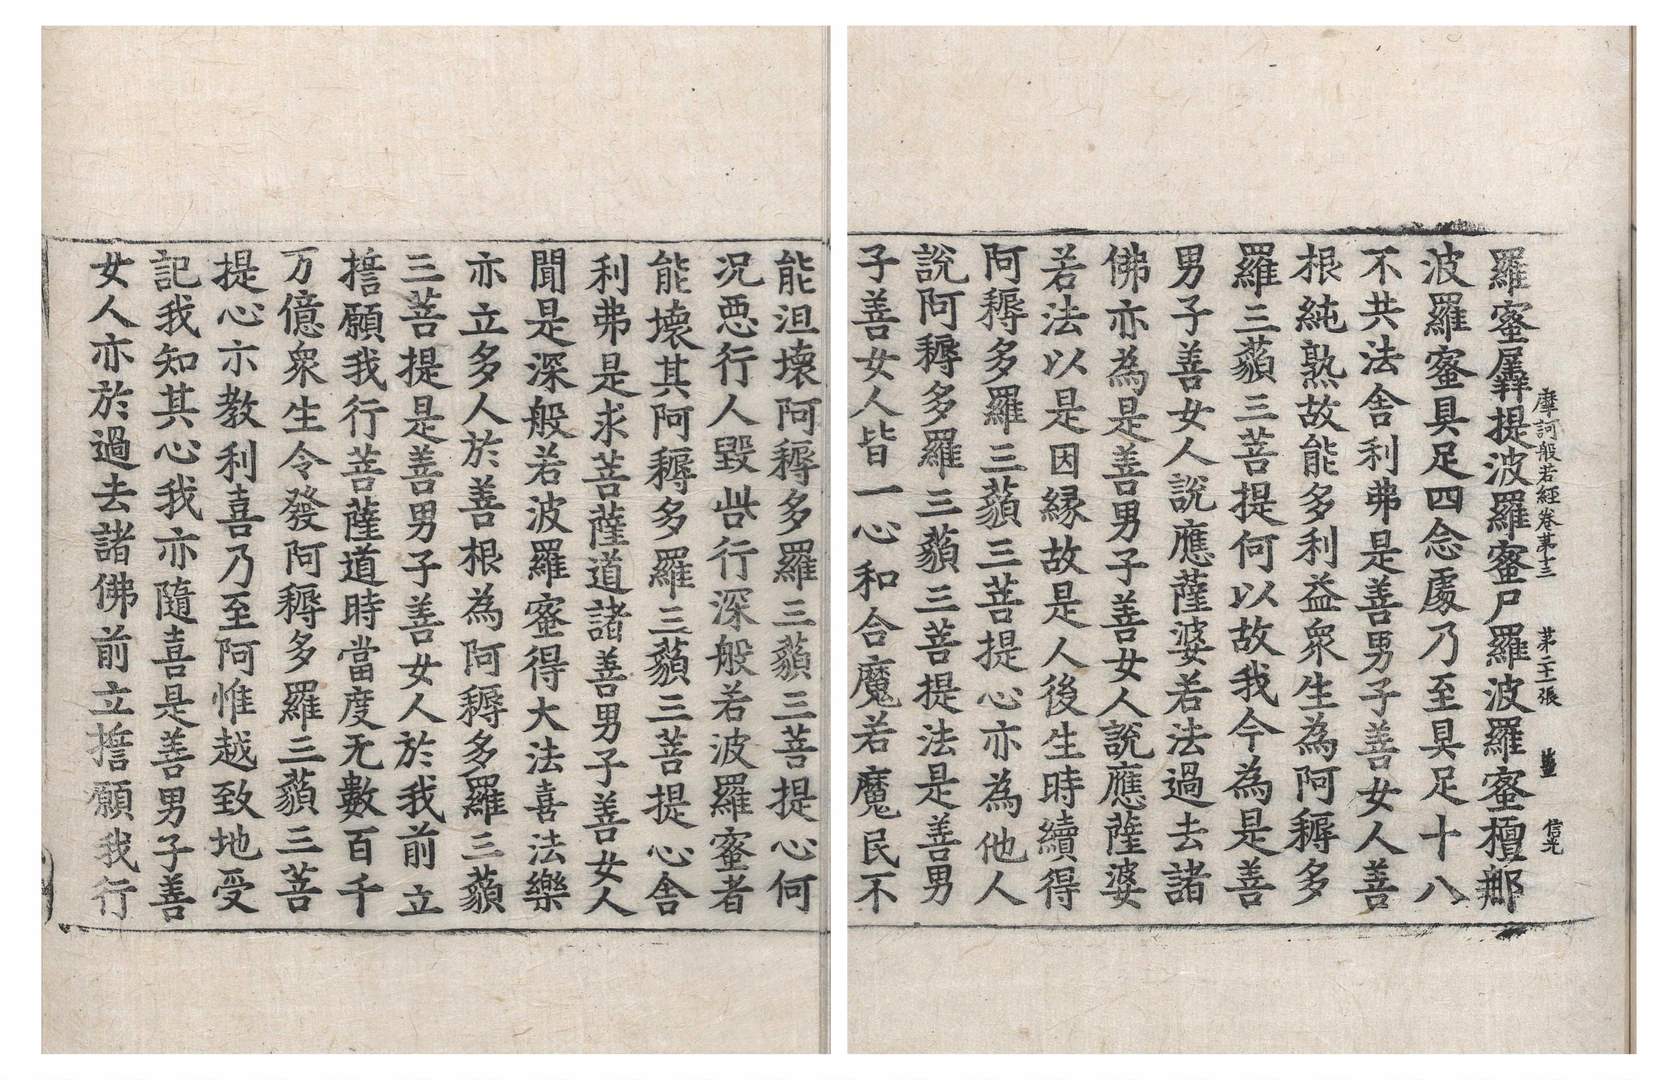 摩訶般若經卷第十三 第二十一張 薑 信光
羅蜜羼提波羅蜜尸羅波羅蜜檀那
波羅蜜具足四念處乃至具足十八
不共法舍利弗是善男子善女人善
根純熟故能多利益衆生為阿耨多
羅三藐三菩提何以故我今為是善
男子善女人說應薩婆若法過去諸
佛亦為是善男子善女人說應薩婆
若法以是因緣故是人後生時續得
阿耨多羅三藐三菩提心亦為他人
說阿耨多羅三藐三菩提法是善男
子善女人皆一心和合魔若魔民不
能沮壞阿耨多羅三藐三菩提心何
况悪行人毀呰行深般若波羅蜜者
能壞其阿耨多羅三藐三菩提心舍
利弗是求菩薩道諸善男子善女人
聞是深般若波羅蜜得大法喜法樂
亦立多人於善根為阿耨多羅三藐
三菩提是善男子善女人於我前立
誓願我行菩薩道時當度无數百千
万億衆生令發阿耨多羅三藐三菩
提心示教利喜乃至阿惟越致地受
記我知其心我亦隨喜是善男子善
女人亦於過去諸佛前立誓願我行